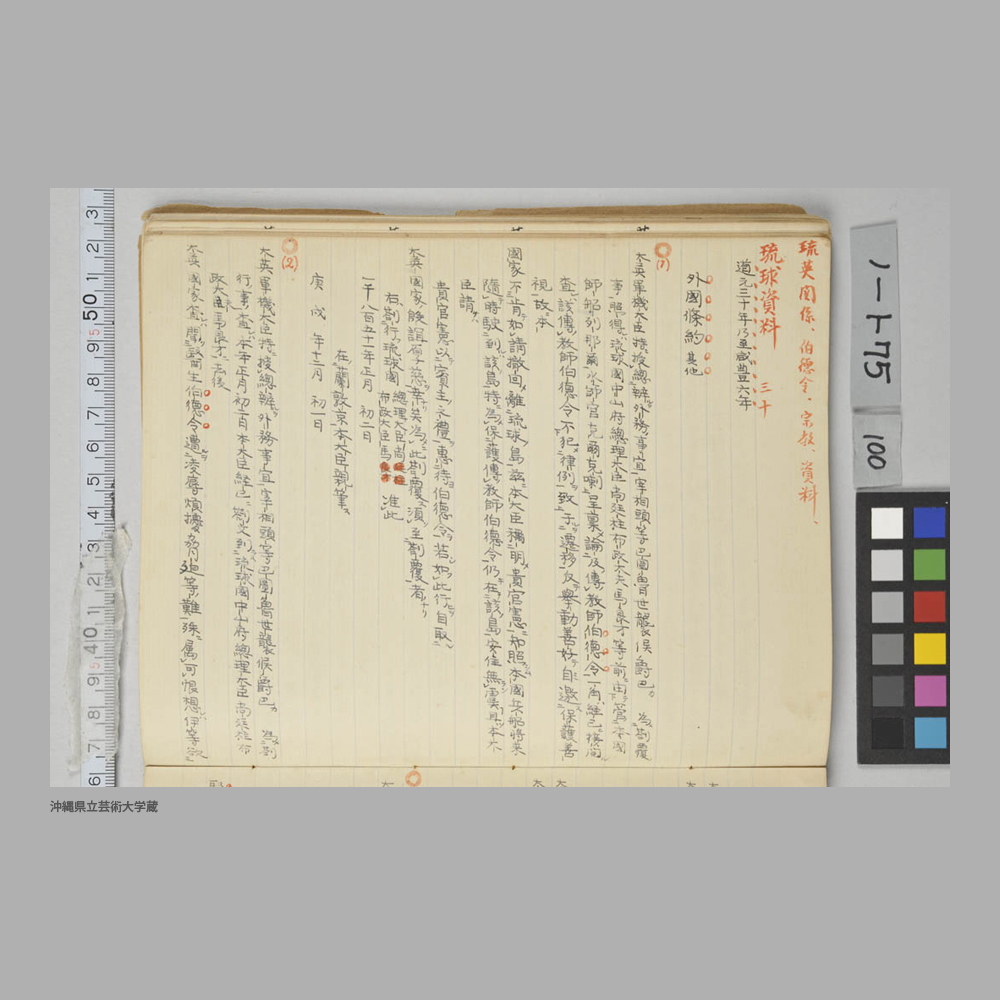 琉英関係、伯德令、宗教、資料、
琉球資料 三十
道光三十年乃至咸豊六年
外國條約 其他
(1)
大英軍機大臣特授總辦外務事宜宰相頭等巴圖魯世襲侯爵巴 為劄覆
事照得琉球國中山府總理大臣尚廷柱布政大夫馬良才等前由管本國
師船列那爾水師官克爾克喇呈稟論及傳教師伯德令一角經已接閲
查該傳教師伯德令不犯律例一致于遷移及舉動善好自邀保護善
視故本
國家不肯如請撤回離琉球島茲本大臣禰明貴官憲知照本國兵船將來
隨時駛到該島特為保護傳教師伯德令仍在該島安住無虞且本大
臣請
貴官憲以賓主之禮惠待伯德令若如此行自取
大英國家般誼厚慈幸矣為此劄覆須至劄覆者
右劄行琉球國 總理大臣尚廷柱 布政大臣馬良才 准此
一千八百五十一年正月 初二日
在蘭敦京本大臣親筆
庚戌 年十二月 初一日
(2)
大英軍機大臣特授總辦外務事宜宰相頭等巴圖魯世襲侯爵巴 為劄
行事查本年正月初二日本大臣經已劄文到琉球國中山府總理大臣尚廷柱布
政大臣馬良才去後
大英國家查聞致留生伯德令遭凌辱煩擾窘迫等難殊屬可恨想伊等欲
ノート75
100
沖縄県立芸術大学蔵